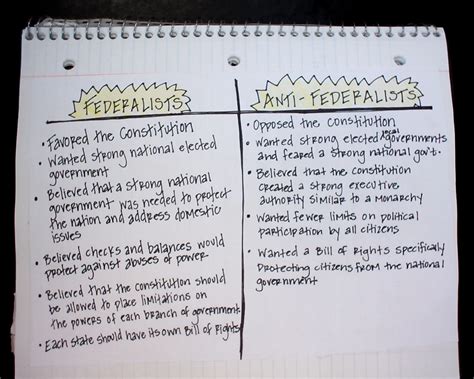 FEDERALISTS
• Favored the Constitution
• Wanted strong national elected
government
• Believed that a strong national
government was needed to protect
the nation and address domestic
issues
• Believed checks and balances would
protect against abuses of power
• Believed that the Constitution should
be allowed to place limitations on
the powers of each branch of government.
• Each state should have its own Bill of Rights
ANTI-FEDERALISTS
• Opposed the Constitution
• Wanted strong elected local governments
and feared a strong national gov't.
• Believed that the Constitution
created a strong executive
authority similar to a monarchy
• Wanted fewer limits on political
participation by all citizens
• Wanted a Bill of Rights specifically
protecting citizens from the national
government